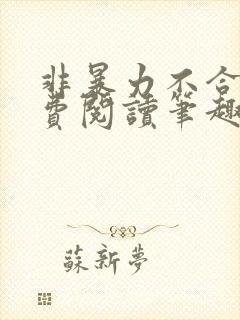 非暴力不合
費閱讀筆趣
蘇新夢